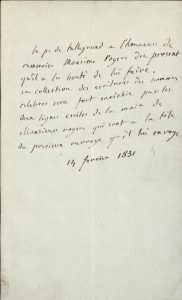 le p. de talleyrand a l'honneur de
remercier Monsieur Rogers du present
qu'il a la bonté de lui faire.
sa collection des ecritures des hommes
celebres sera fort enrichie par les
deux lignes ecrites de la main de
Monsieur rogers qui sont a la tete
du precieux ouvrage qu'il lui envoye
14 fevrier 1831